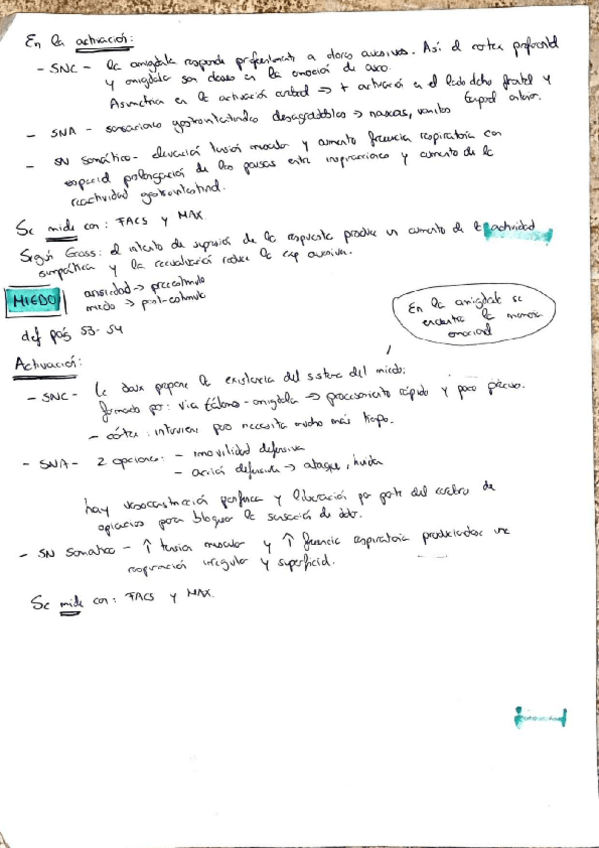 En la activación:
- SNC - la amigdala responde preferentemente a olores aversivos. Así el cortex prefrontal
y amigdala son claves en la emoción de asco.
Asimetría en la activación cerebral → + activación en el lado dcho frontal y
temporal anterior.
- SNA - sensaciones gastrointestinales desagradables → nauseas, vomitos
- SN somático - elevación tensión muscular y aumento frecuencia respiratoria con
especial prolongación de las pausas entre inspiraciones y aumento de la
reactividad gastrointestinal.
Se mide con: FACS y MAX.
Según Gross: el intento de supresión de la respuesta produce un aumento de la actividad
simpática y la reevaluación reduce la exp aversiva.
MIEDO
ansiedad → preestimulo
miedo → post-estimulo
def pág 53-54
En la amigdala se
encuentra la memoria
emocional
Activación:
- SNC - Le doux propone la existencia del sistema del miedo:
formado por: via tálamo-amigdala → procesamiento rápido y poco preciso.
- córtex: interviene pero necesita mucho más tiempo.
- SNA - 2 opciones: - inmovilidad defensiva
- acción defensiva → ataque, huida
hay vasoconstricción periferica y liberación por parte del cerebro de
opiaceos para bloquear la sensación de dolor.
- SN somatico - ↑ tension muscular y ↑ frecuencia respiratoria produciendose una
respiración irregular y superficial.
Se mide con: FACS y MAX.